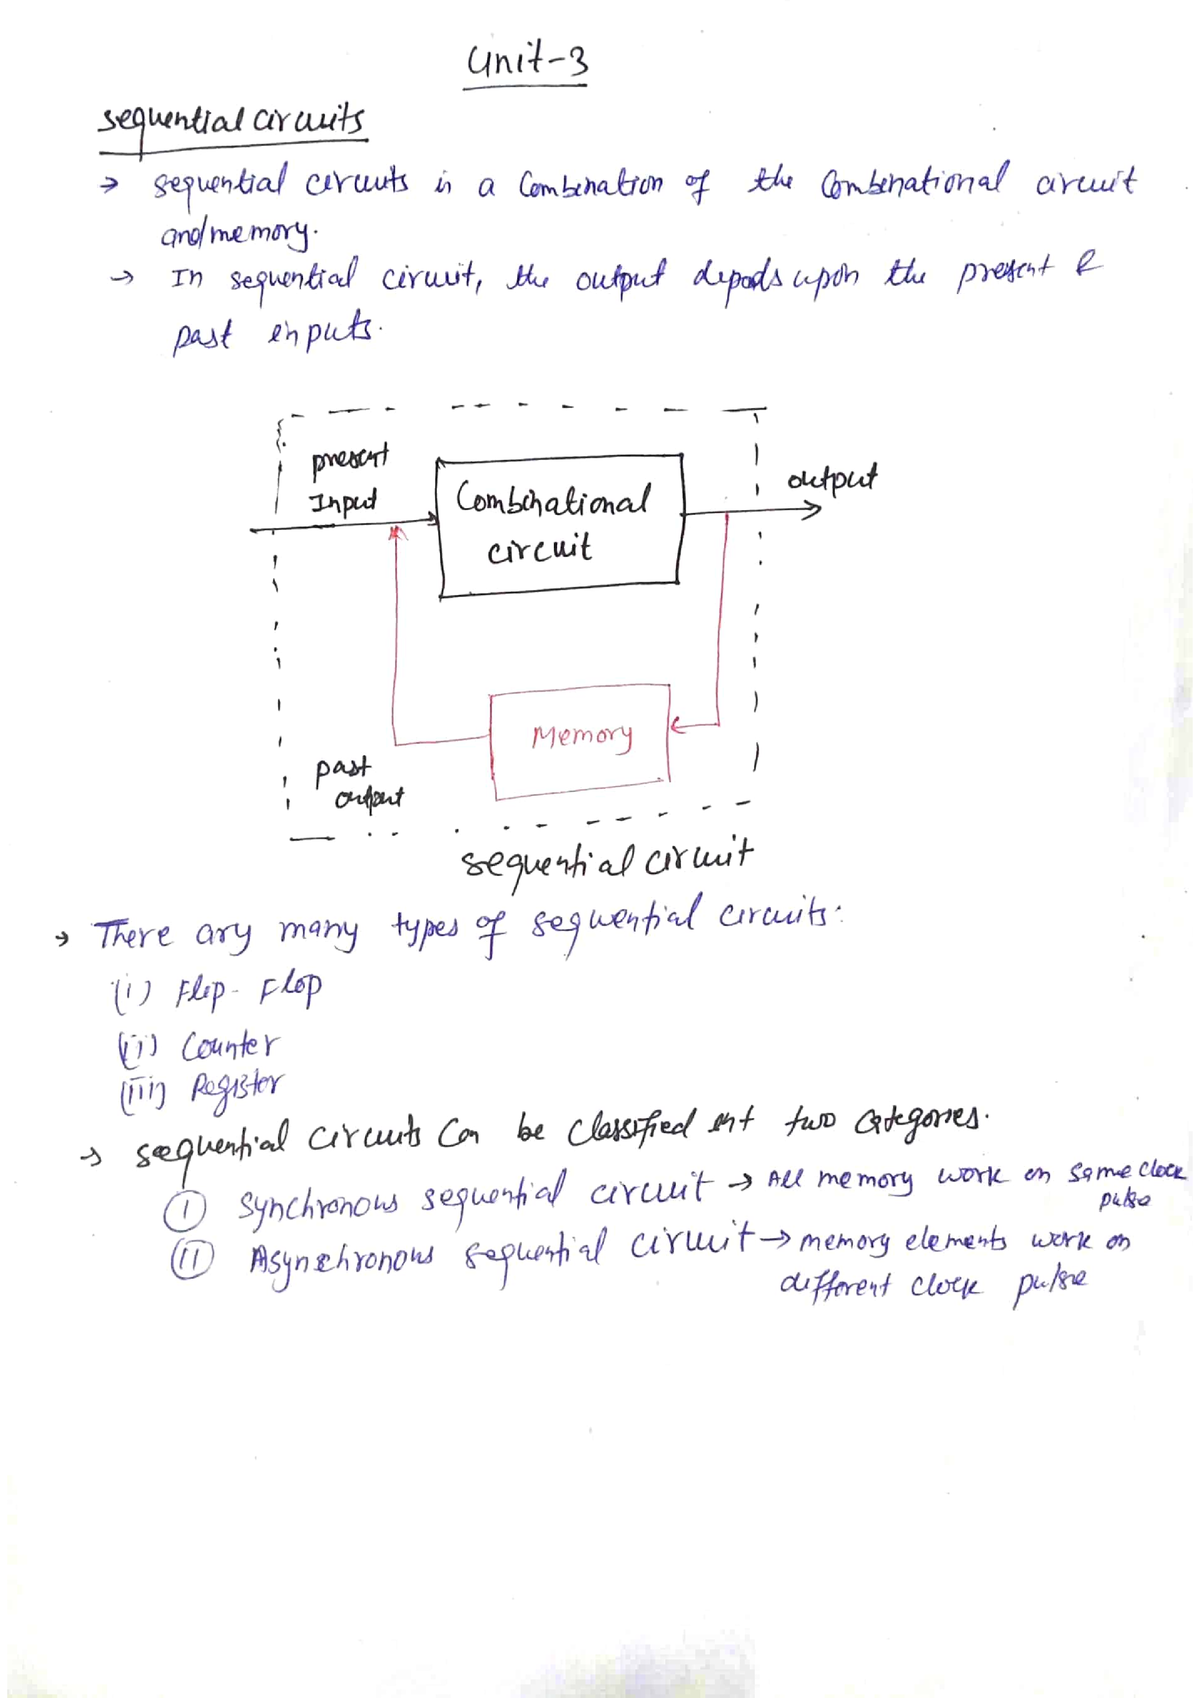 Unit-3
sequential circuits
→ sequential circuits is a Combination of the Combinational circuit
and memory.
→ In sequential circuit, the output depends upon the present &
past inputs.
present
Input
Combinational
circuit
output
Memory
past
output
sequential circuit
→ There ary many types of sequential circuits:
(i) Flip-Flop
(ii) Counter
(iii) Register
→ sequential circuits Can be classified int two Categories.
(I) Synchronous sequential circuit → All memory work on same clock
pulse
(II) Asynchronous sequential circuit → memory elements work on
different clock pulse